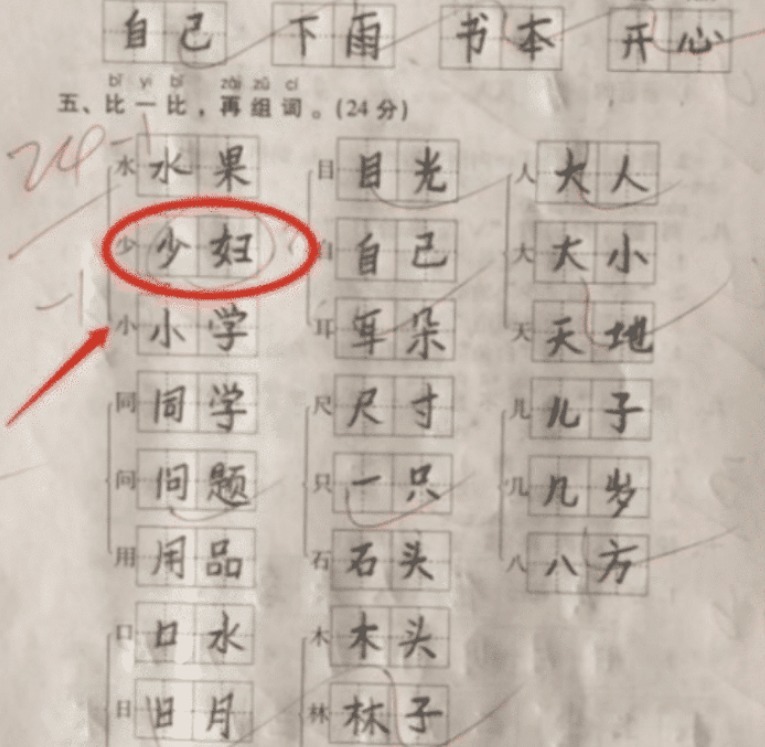 自己 下雨 书本 开心
bǐ yi bǐ zài zǔ cí
五、比一比，再组词。(24分)
24
-1
水 水果 目 目光 人 大人
少 少妇 自 自己 大 大小
-1
小 小学 耳 耳朵 天 天地
同 同学 尺 尺寸 儿 儿子
问 问题 只 一只 几 几岁
用 用品 石 石头 八 八方
口 口水 木 木头
日 日月 林 林子